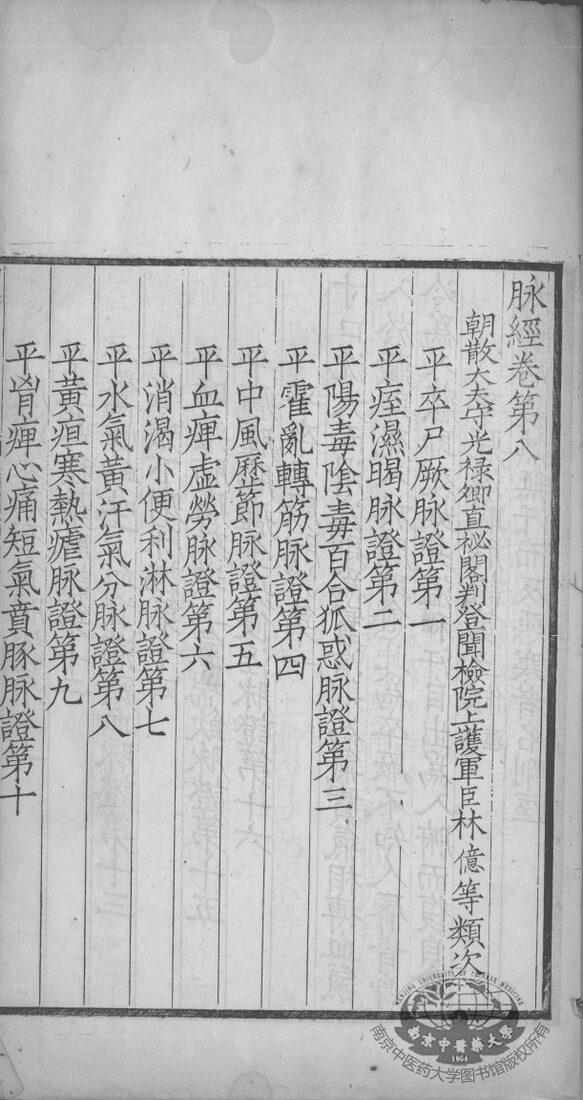 脉經卷第八
朝散大夫守光祿卿直祕閣判登聞檢院上護軍臣林億等類次
平卒尸厥脉證第一
平痓濕暍脉證第二
平陽毒陰毒百合狐惑脉證第三
平霍亂轉筋脉證第四
平中風歷節脉證第五
平血痺虛勞脉證第六
平消渴小便利淋脉證第七
平水氣黃汗氣分脉證第八
平黃疸寒熱瘧脉證第九
平胷痺心痛短氣賁豚脉證第十
NANJING UNIVERSITY OF CHINESE MEDICINE
南京中醫藥大學
1954
南京中医药大学图书馆版权所有